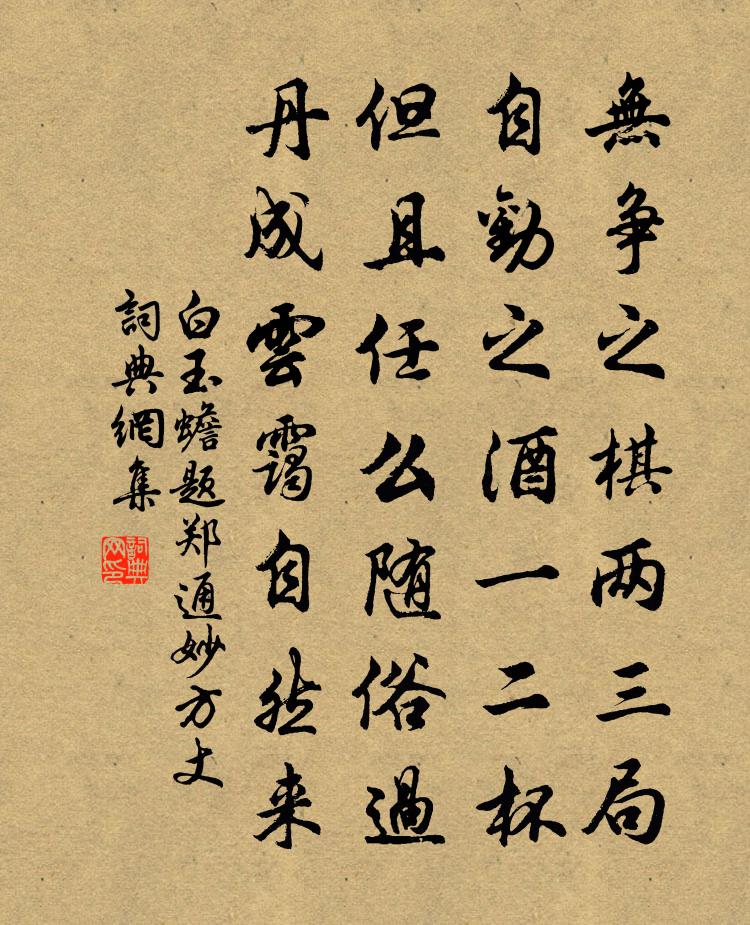 無争之棋两三局
自勸之酒一二杯
但且任么随俗過
丹成雲霭自然来
白玉蟾题郑通妙方丈
詞典網集
詞典网印